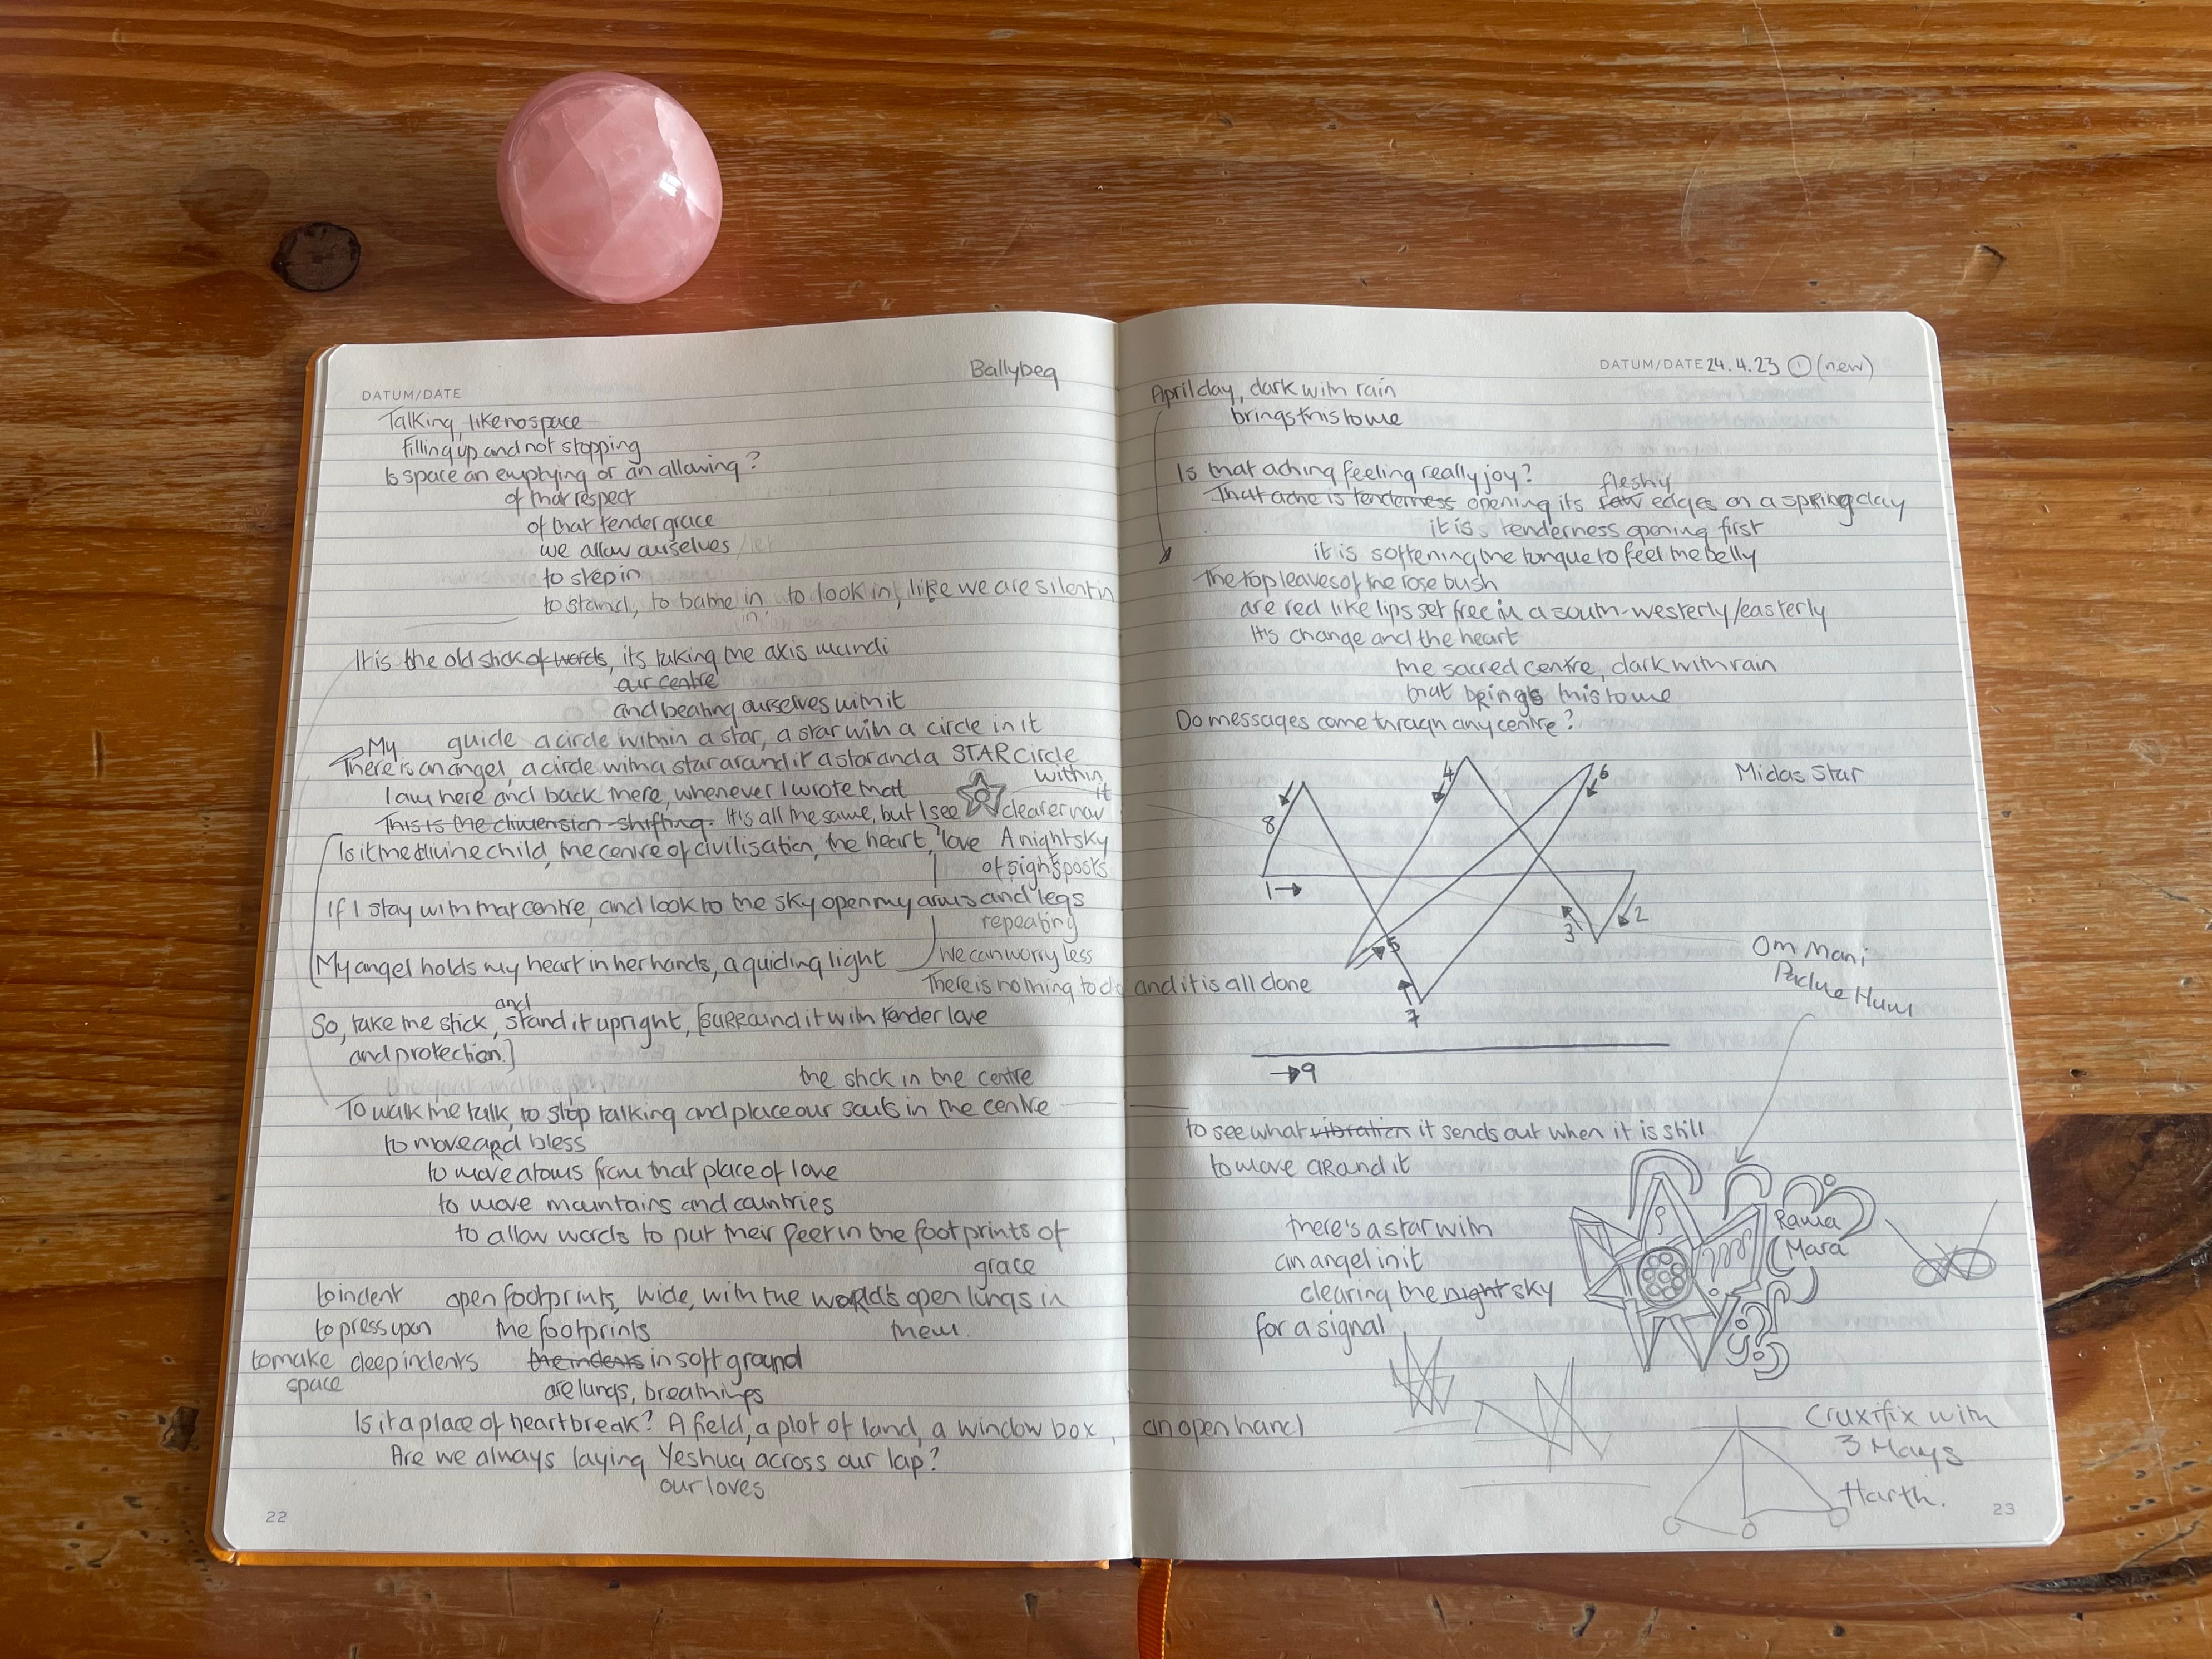 Ballybeg
DATUM/DATE
Talking, like no space
filling up and not stopping
Is space an emptying or an allowing?
of that respect
of that tender grace
we allow ourselves
to step in
to stand, to bathe in, to look in, like we are silent in
in
It is the old stick of words, its taking the axis mundi
our centre
and beating ourselves with it
My guide a circle within a star, a star with a circle in it
There is an angel, a circle with a star around it a star and a STAR circle
within
it
I am here and back there, whenever I wrote that
This is the dimension-shifting. It's all the same, but I see clearer now
Is it the divine child, the centre of civilisation, the heart, love A night sky
of sightsposts
If I stay with that centre, and look to the sky open my arms and legs
repeating
My angel holds my heart in her hands, a guiding light we can worry less
There is nothing to do and it is all done
and
So, take the stick, stand it upright, [SURROUND it with tender love
and protection.]
the stick in the centre
To walk the talk, to stop talking and place our souls in the centre
to move and bless
to move atoms from that place of love
to move mountains and countries
to allow words to put their feet in the footprints of
grace
to indent open footprints, wide, with the world's open lungs in
to press upon the footprints them.
to make deep indents the indents in soft ground
space
are lungs, breathings
Is it a place of heartbreak? A field, a plot of land, a window box, an open hand
Are we always laying Yeshua across our lap?
our loves
22
DATUM/DATE 24.4.23 1 (new)
April day, dark with rain
brings this to me
Is that aching feeling really joy?
fleshy
That ache is tenderness opening its raw edges on a spring day
it is tenderness opening first
it is softening the tongue to feel the belly
The top leaves of the rose bush
are red like lips set free in a south-westerly/easterly
It's change and the heart
the sacred centre, dark with rain
that brings this to me
Do messages come through any centre?
Midas Star
4
6
8
1
2
3
5
7
Om Mani
Padme Hum
9
to see what vibration it sends out when it is still
to move around it
there's a star with
an angel in it
clearing the night sky
for a signal
Rama
Mara
Cruxifix with
3 Marys
Harth.
23